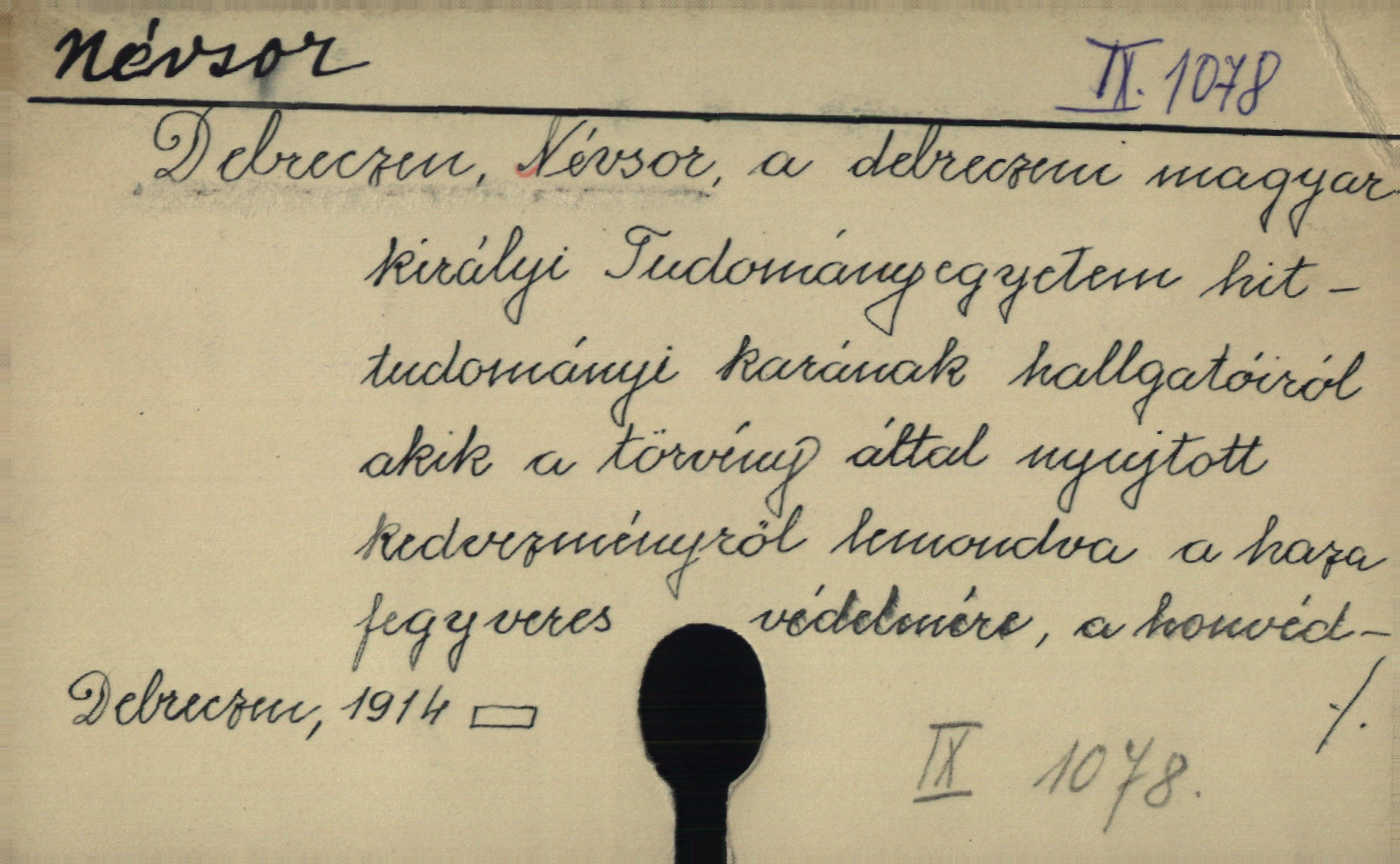 Névsor
IX. 1078
Debreczen, Névsor, a debreczeni magyar
királyi Tudományegyetem hit-
tudományi karának hallgatóiról
akik a törvény által nyujtott
kedvezményről lemondva a haza
fegyveres védelmére, a honvéd-
Debreczen, 1914
./.
IX 1078.